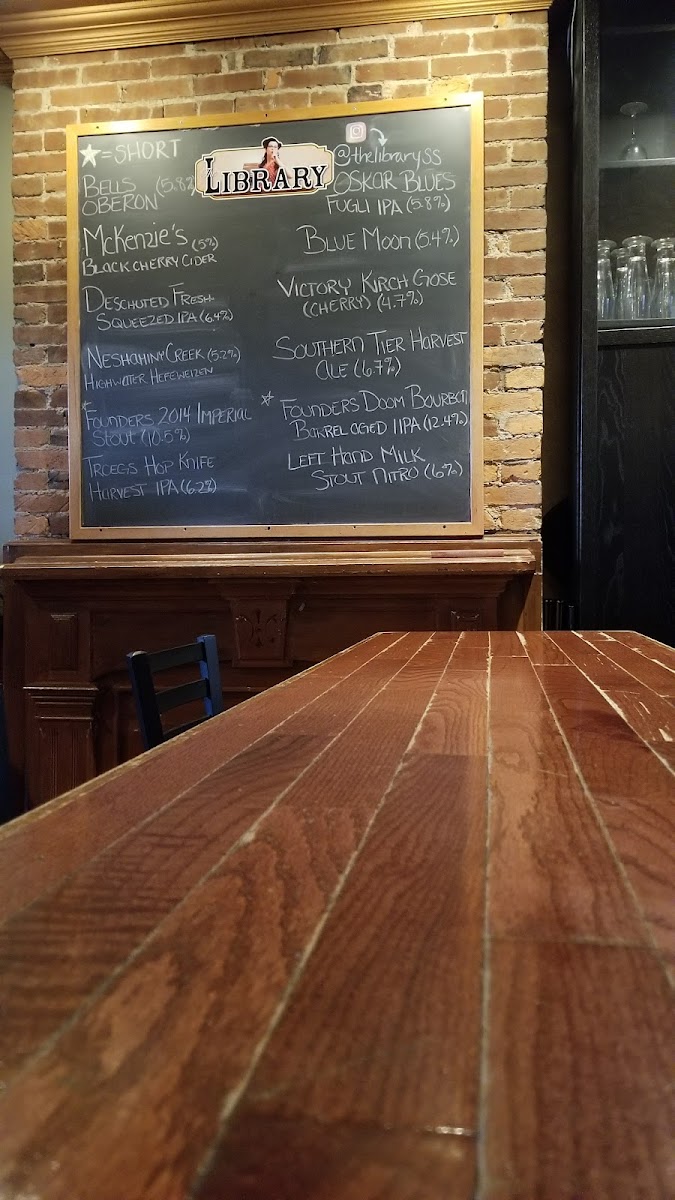 ★=SHORT
LIBRARY
@thelibrarySS
BELLS (5.8%)
OBERON
MCKENZIE'S (5%)
BLACK CHERRY CIDER
DESCHUTED FRESH
SQUEEZED IPA (6.4%)
NESHAMINY CREEK (5.2%)
HIGHWATER HEFEWEIZEN
*
FOUNDERS 2014 IMPERIAL
STOUT (10.5%)
TROEGS HOP KNIFE
HARVEST IPA (6.2%)
OSKAR BLUES
FUGLI IPA (5.8%)
BLUE MOON (5.4%)
VICTORY KIRCH GOSE
(CHERRY) (4.7%)
SOUTHERN TIER HARVEST
ALE (6.7%)
☆ FOUNDERS DOOM BOURBON
BARREL AGED IIPA (12.4%)
LEFT HAND MILK
STOUT NITRO (6%)